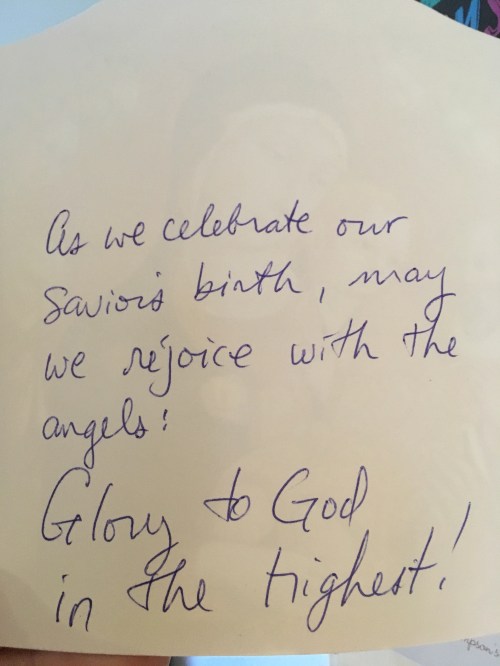 As we celebrate our
Savior's birth, may
we rejoice with the
angels:
Glory to God
in the highest!